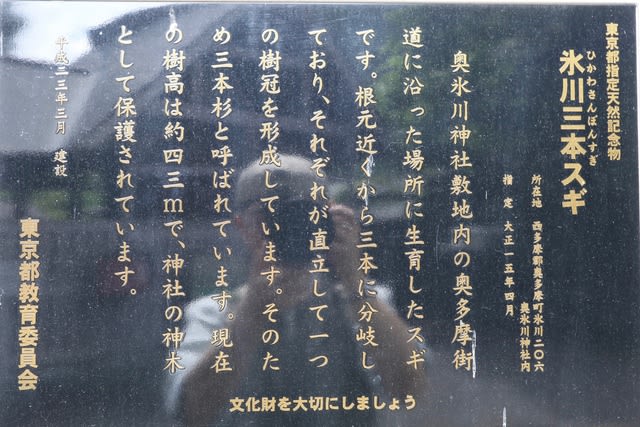 東京都指定天然記念物
ひかわさんぼんすぎ
氷川三本スギ
所在地 西多摩郡奥多摩町氷川二〇六
奥氷川神社内
指定 大正一五年四月
奥氷川神社敷地内の奥多摩街
道に沿った場所に生育したスギ
です。根元近くから三本に分岐し
ており、それぞれが直立して一つ
の樹冠を形成しています。そのた
め三本杉と呼ばれています。現在
の樹高は約四三mで、神社の神木
として保護されています。
平成二三年三月 建設
東京都教育委員会
文化財を大切にしましょう